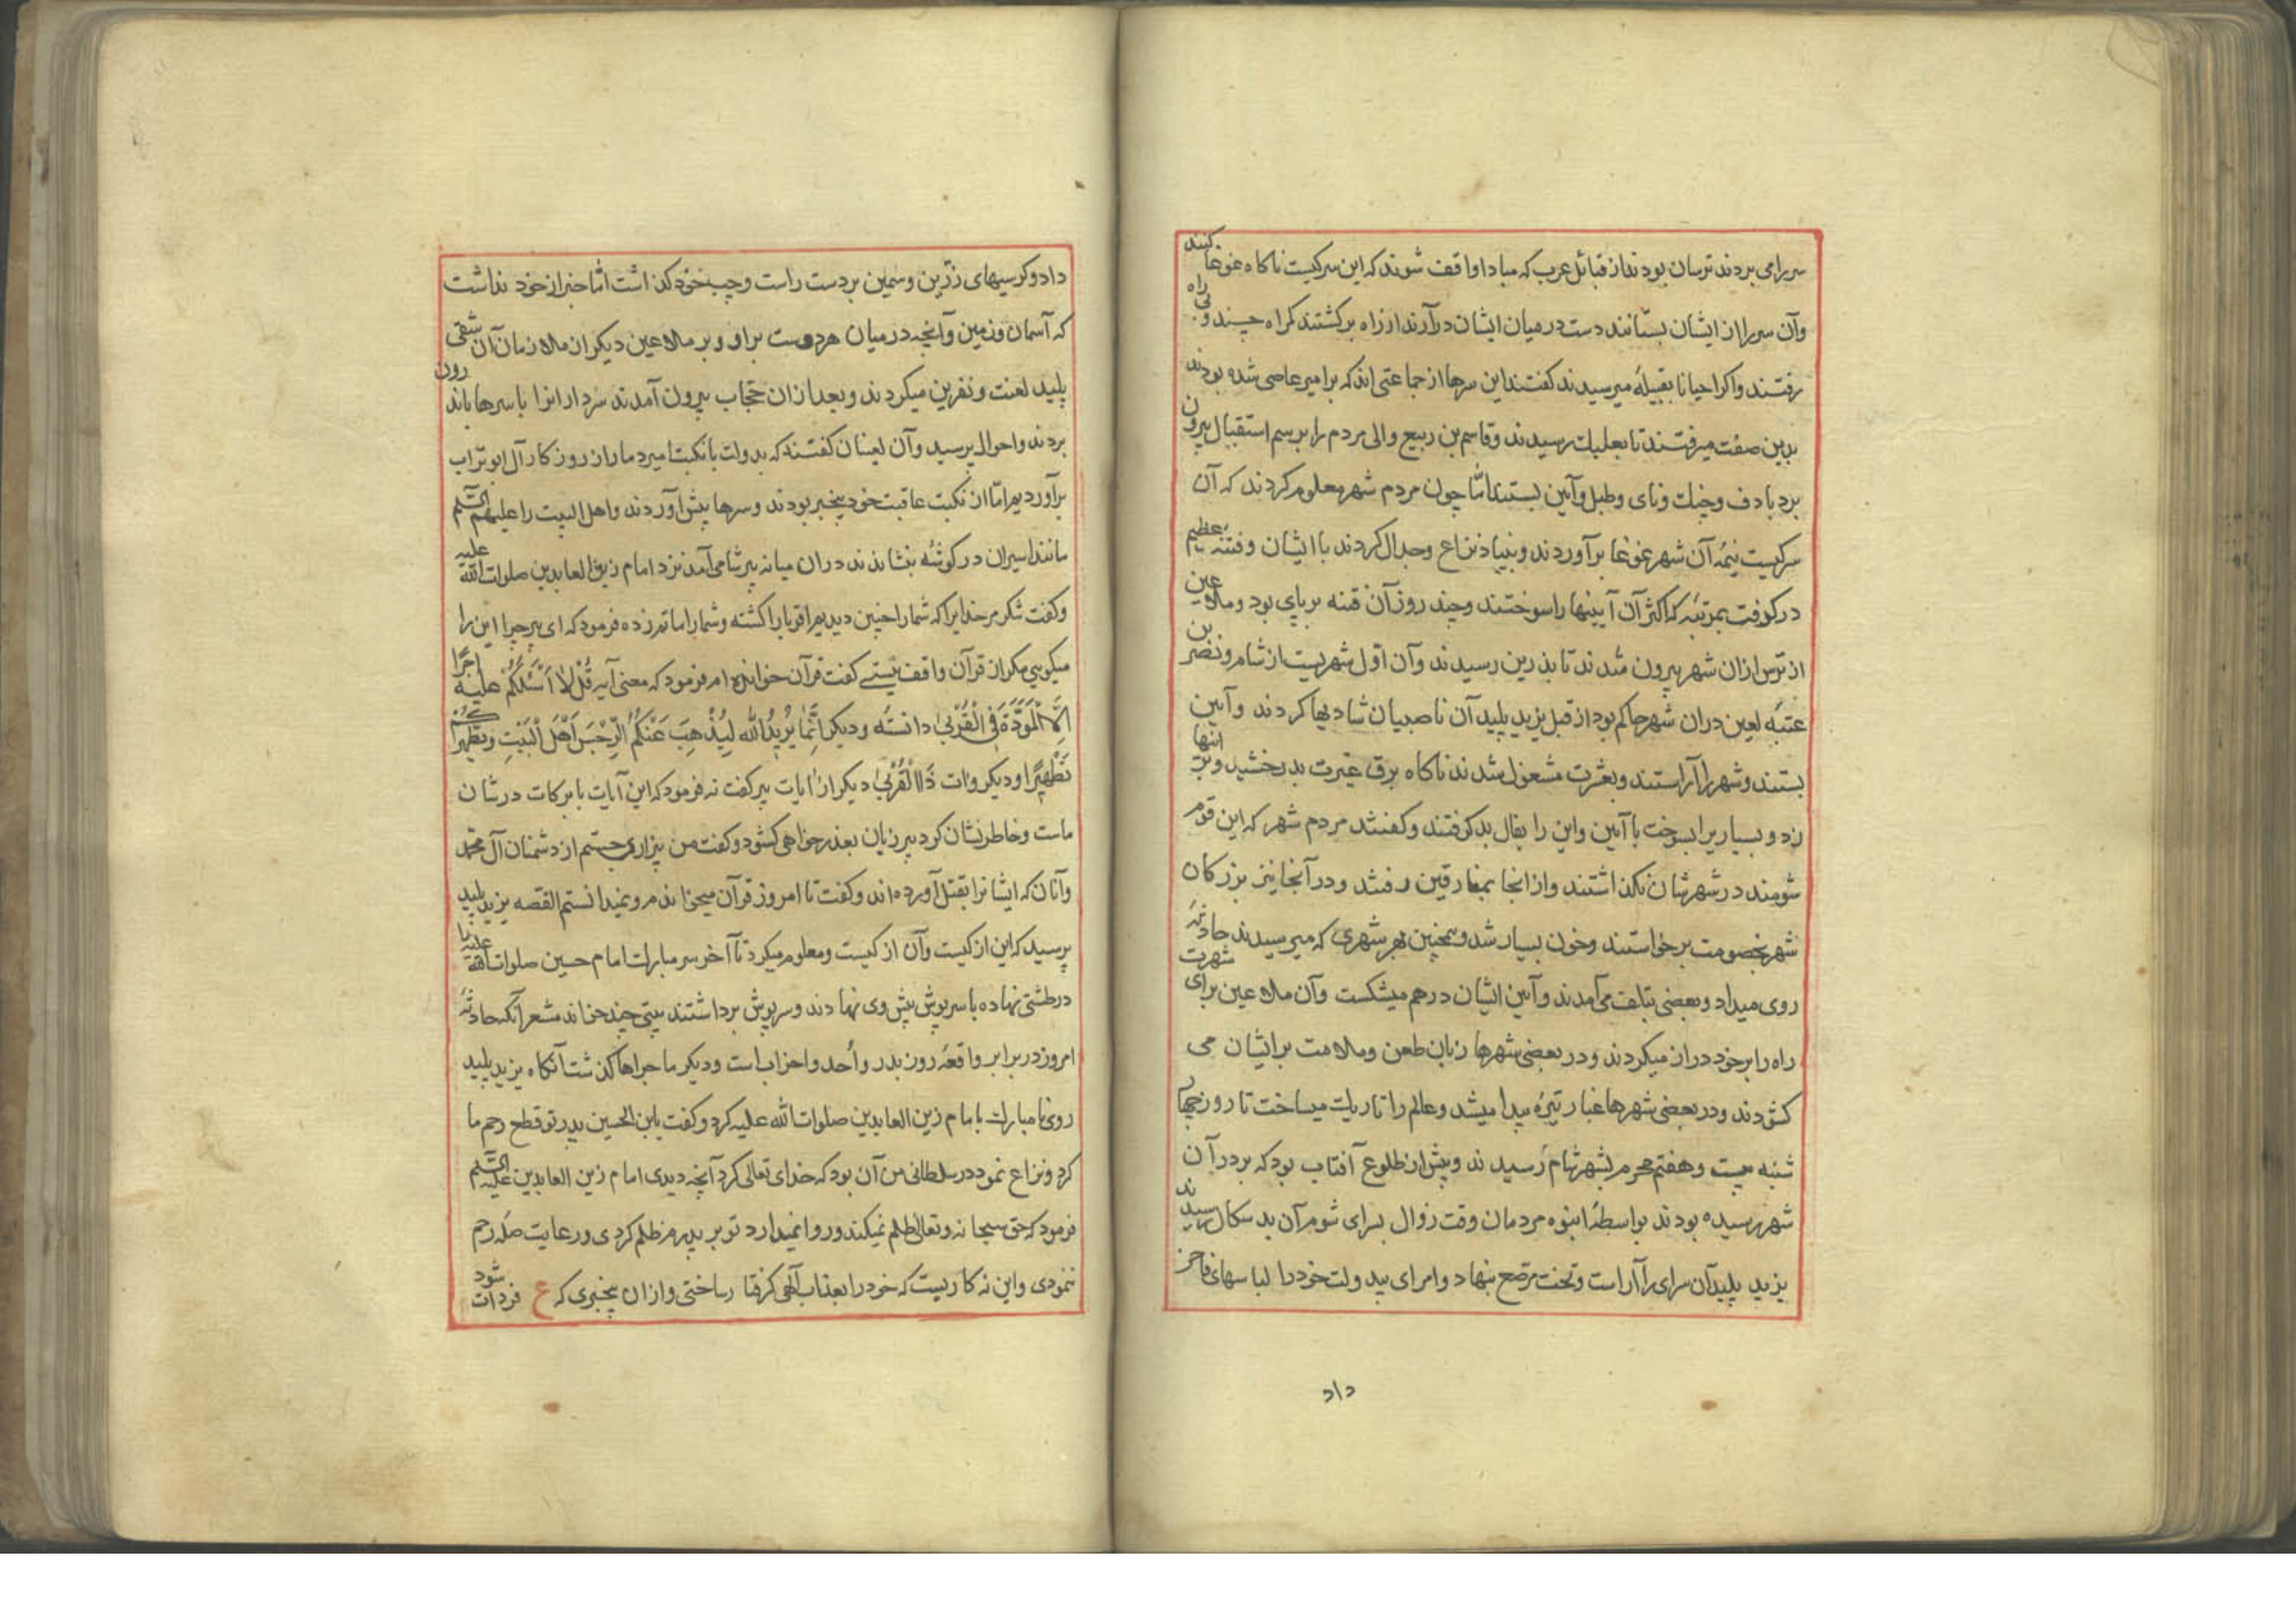 سر را می بردند ترسان بودند از قبائل عرب که مبادا واقف شوند که این سر کیست ناکاه غوغا کنند
وآن سر را از ایشان بستانند دست در میان ایشان درآرند از راه برکشتند کراه چند و بی راه
رفتند واکر احیانا بقبیلهٔ میرسیدند کفتند این سرها از جماعتی اند که بر امیر عاصی شده بودند
بدین صفت میرفتند تا بعلبک رسیدند وقاسم بن ربیع والی مردم را برسم استقبال بیرون
برد با دف وچنک ونای وطبل وآیین بستند امّا چون مردم شهر معلوم کردند که آن
سر کیست نیمهٔ آن شهر غوغا برآوردند وبنیاد نزاع وجدال کردند با ایشان وفتنهٔ عظیم
در کرفت بمرتبهٔ که اکثر آن آیینها را سوختند وچند روز آن فتنه برپای بود وملاعین
از ترس ازان شهر بیرون شدند تا بذرین رسیدند وآن اوّل شهریست از شام ونضر بن
عتبهٔ لعین دران شهر حاکم بود از قبل یزید پلید آن ناصبیان شادیها کردند وآیین
بستند وشهر را آراستند وبعشرت مشغول شدند ناکاه برق غیرت بدرخشید وبر انها
زد وبسیاریرا بسوخت با آیین واین را بفال بد کرفتند وکفتند مردم شهر که این قوم
شومند در شهرشان نکذاشتند وازانجا بمفارقین رفتند ودر آنجا نیز بزرکان
شهر بخصومت برخواستند وخون بسیار شد وهمچنین بهر شهری که میرسیدند حادثهٔ
روی میداد وبعضی بتلف می آمدند وآیین ایشان درهم میشکست وآن ملاعین برای شهرت
راه را بر خود دراز میکردند ودر بعضی شهرها زبان طعن وملامت بر ایشان می
کشودند ودر بعضی شهرها غبار تیره پیدا میشد وعالم را تاریک میساخت تا روز چهار
شنبه بیست وهفتم محرم بشهر شام رسیدند وپیش از طلوع آفتاب بود که بر در آن
شهر رسیده بودند بواسطهٔ انبوه مردمان وقت زوال بسرای شوم آن بد سکال رسیدند
یزید پلید آن سرای را آراست وتخت مرصّع بنهاد وامرای بیدولت خود را لباسهای فاخر
داد
داد وکرسیهای زرّین وسیمین بر دست راست وچپ خود کذاشت امّا خبر از خود نداشت
که آسمان وزمین وآنچه در میان هر دوست بر او وبر ملاعین دیکر از ملازمان آن شقی
پلید لعنت ونفرین میکردند وبعد ازان حجّاب بیرون آمدند سردارانرا با سرها باندرون
بردند واحوال پرسید وآن لعینان کفتند که بدولت بانکبت امیر دمار از روزکار آل ابوتراب
برآوردیم امّا از نکبت عاقبت خود بیخبر بودند وسرها پیش آوردند واهل البیت را علیهم السّلم
مانند اسیران در کوشهٔ بنشاندند دران میانه پیر شامی آمد نزد امام زین العابدین صلوات الله علیه
وکفت شکر مر خدایرا که شما را چنین دیدیم اقربا را کشته وشما را ماتم زده فرمود که ای پیر چرا این را
میکویی مکر از قرآن واقف نیستی کفت قرآن خوانده ام فرمود که معنی آیه قُلْ لا اَسْئَلُکُمْ عَلَیْهِ اَجْرًا
اِلَّا الْمَوَدَّةَ فِی الْقُرْبیٰ دانستهٔ ودیکر اِنَّما یُرِیدُ اللّٰهُ لِیُذْهِبَ عَنْکُمُ الرِّجْسَ اَهْلَ الْبَیْتِ وَیُطَهِّرَکُمْ
تَطْهِیرًا ودیکر وآت ذَا الْقُرْبیٰ دیکر از ایات پیر کفت نه فرمود که این آیات بابرکات در شان
ماست وخاطرنشان کرد پیر زبان بعذرخواهی کشود وکفت من بیزاری جستم از دشمنان آل محمّد
وآنان که ایشانرا بقتل آورده اند وکفت تا امروز قرآن میخواندم ونمیدانستم القصه یزید پلید
پرسید که این از کیست وآن از کیست ومعلوم میکرد تا آخر سر مبارک امام حسین صلوات الله علیه را
در طشتی نهاده با سرپوش پیش وی نهادند وسرپوش برداشتند بیتی چند خواند مشعر آنکه حادثهٔ
امروز در برابر واقعهٔ روز بدر واُحد واحزاب است ودیکر ماجراها کذشت آنکاه یزید پلید
روی نامبارک بامام زین العابدین صلوات الله علیه کرد وکفت یابن الحسین پدر تو قطع رحم ما
کرد ونزاع نمود در سلطانی من آن بود که خدای تعالی کرد آنچه دیدی امام زین العابدین علیه السّلم
فرمود که حق سبحانه وتعالی ظلم نمیکند وروا نمیدارد تو بر پدرم ظلم کردی ورعایت صله رحم
ننمودی واین نه کاریست که خود را بعذاب آلهی کرفتار ساختی وازان بیخبری که ع فردات شود